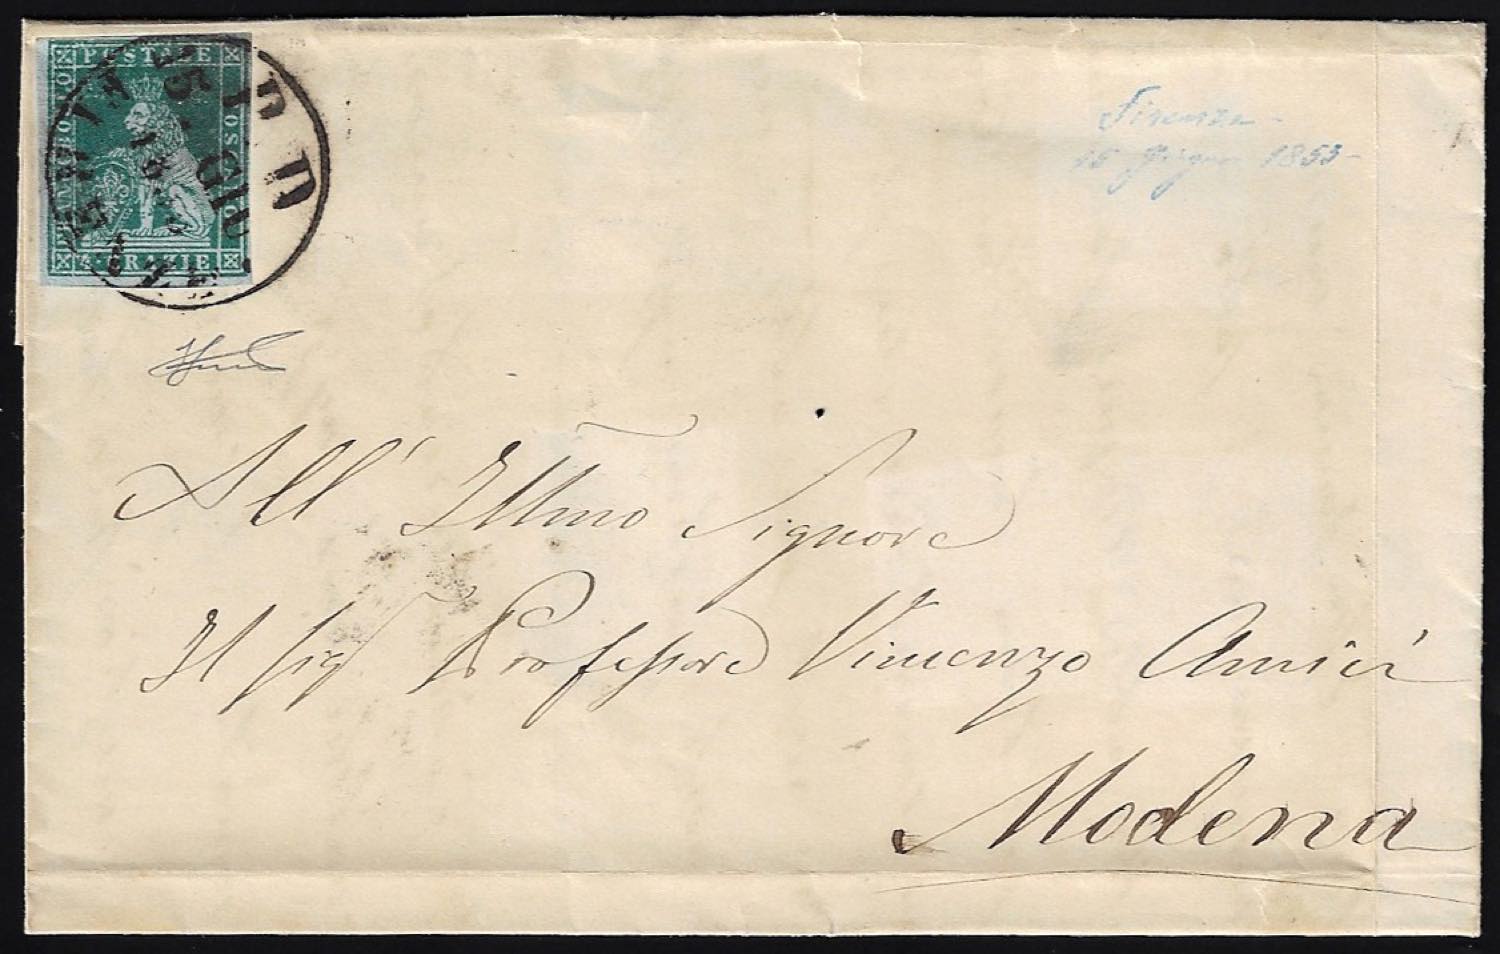 FRANCOBOLLO
POSTALE
TOSCANO
4 CRAZIE
15 GIU
18
Firenze
15 Giugno 1853
All' Illmo Signore
Il Sig Professore Vincenzo Amici
Modena